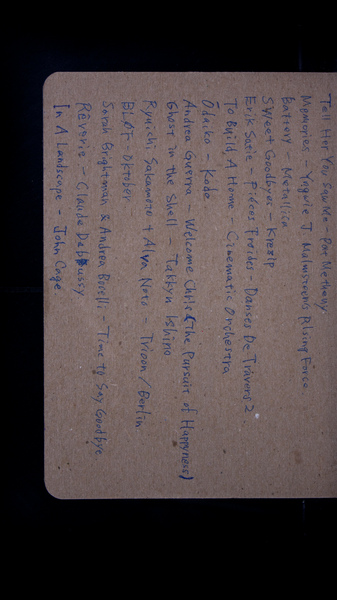 Tell Her You Saw Me - Pat Metheny
Memories - Yngwie J Malmsteen's Rising Force
Battery - Metallica
Sweet Goodbyes - Krezip
Erik Satie - Pièces Froides - Danses De Travers 2
To Build A Home - Cinematic Orchestra
Ödaiko - Kodo
Andrea Guerra - Welcome Chris (The Pursuit of Happyness)
Ghost in the Shell - Takkyu Ishino
Ryuichi Sakamoto + Alva Noto - Trioon / Berlin
BLØF - Oktober
Sarah Brightman & Andrea Bocelli - Time to Say Goodbye
Rêverie - Claude Debussy
In A Landscape - John Cage